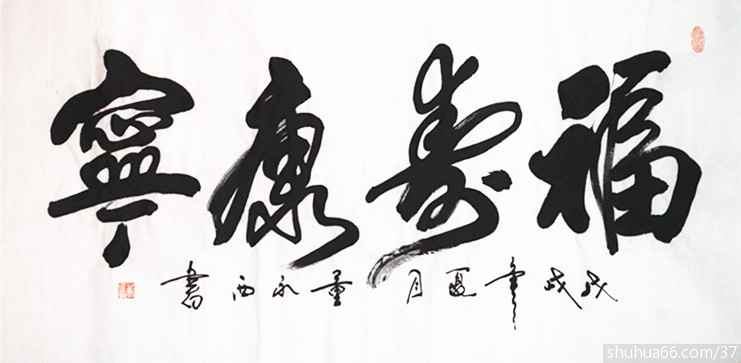 福寿康寧
戊戌年夏月董永西書
shuhua66.com/37